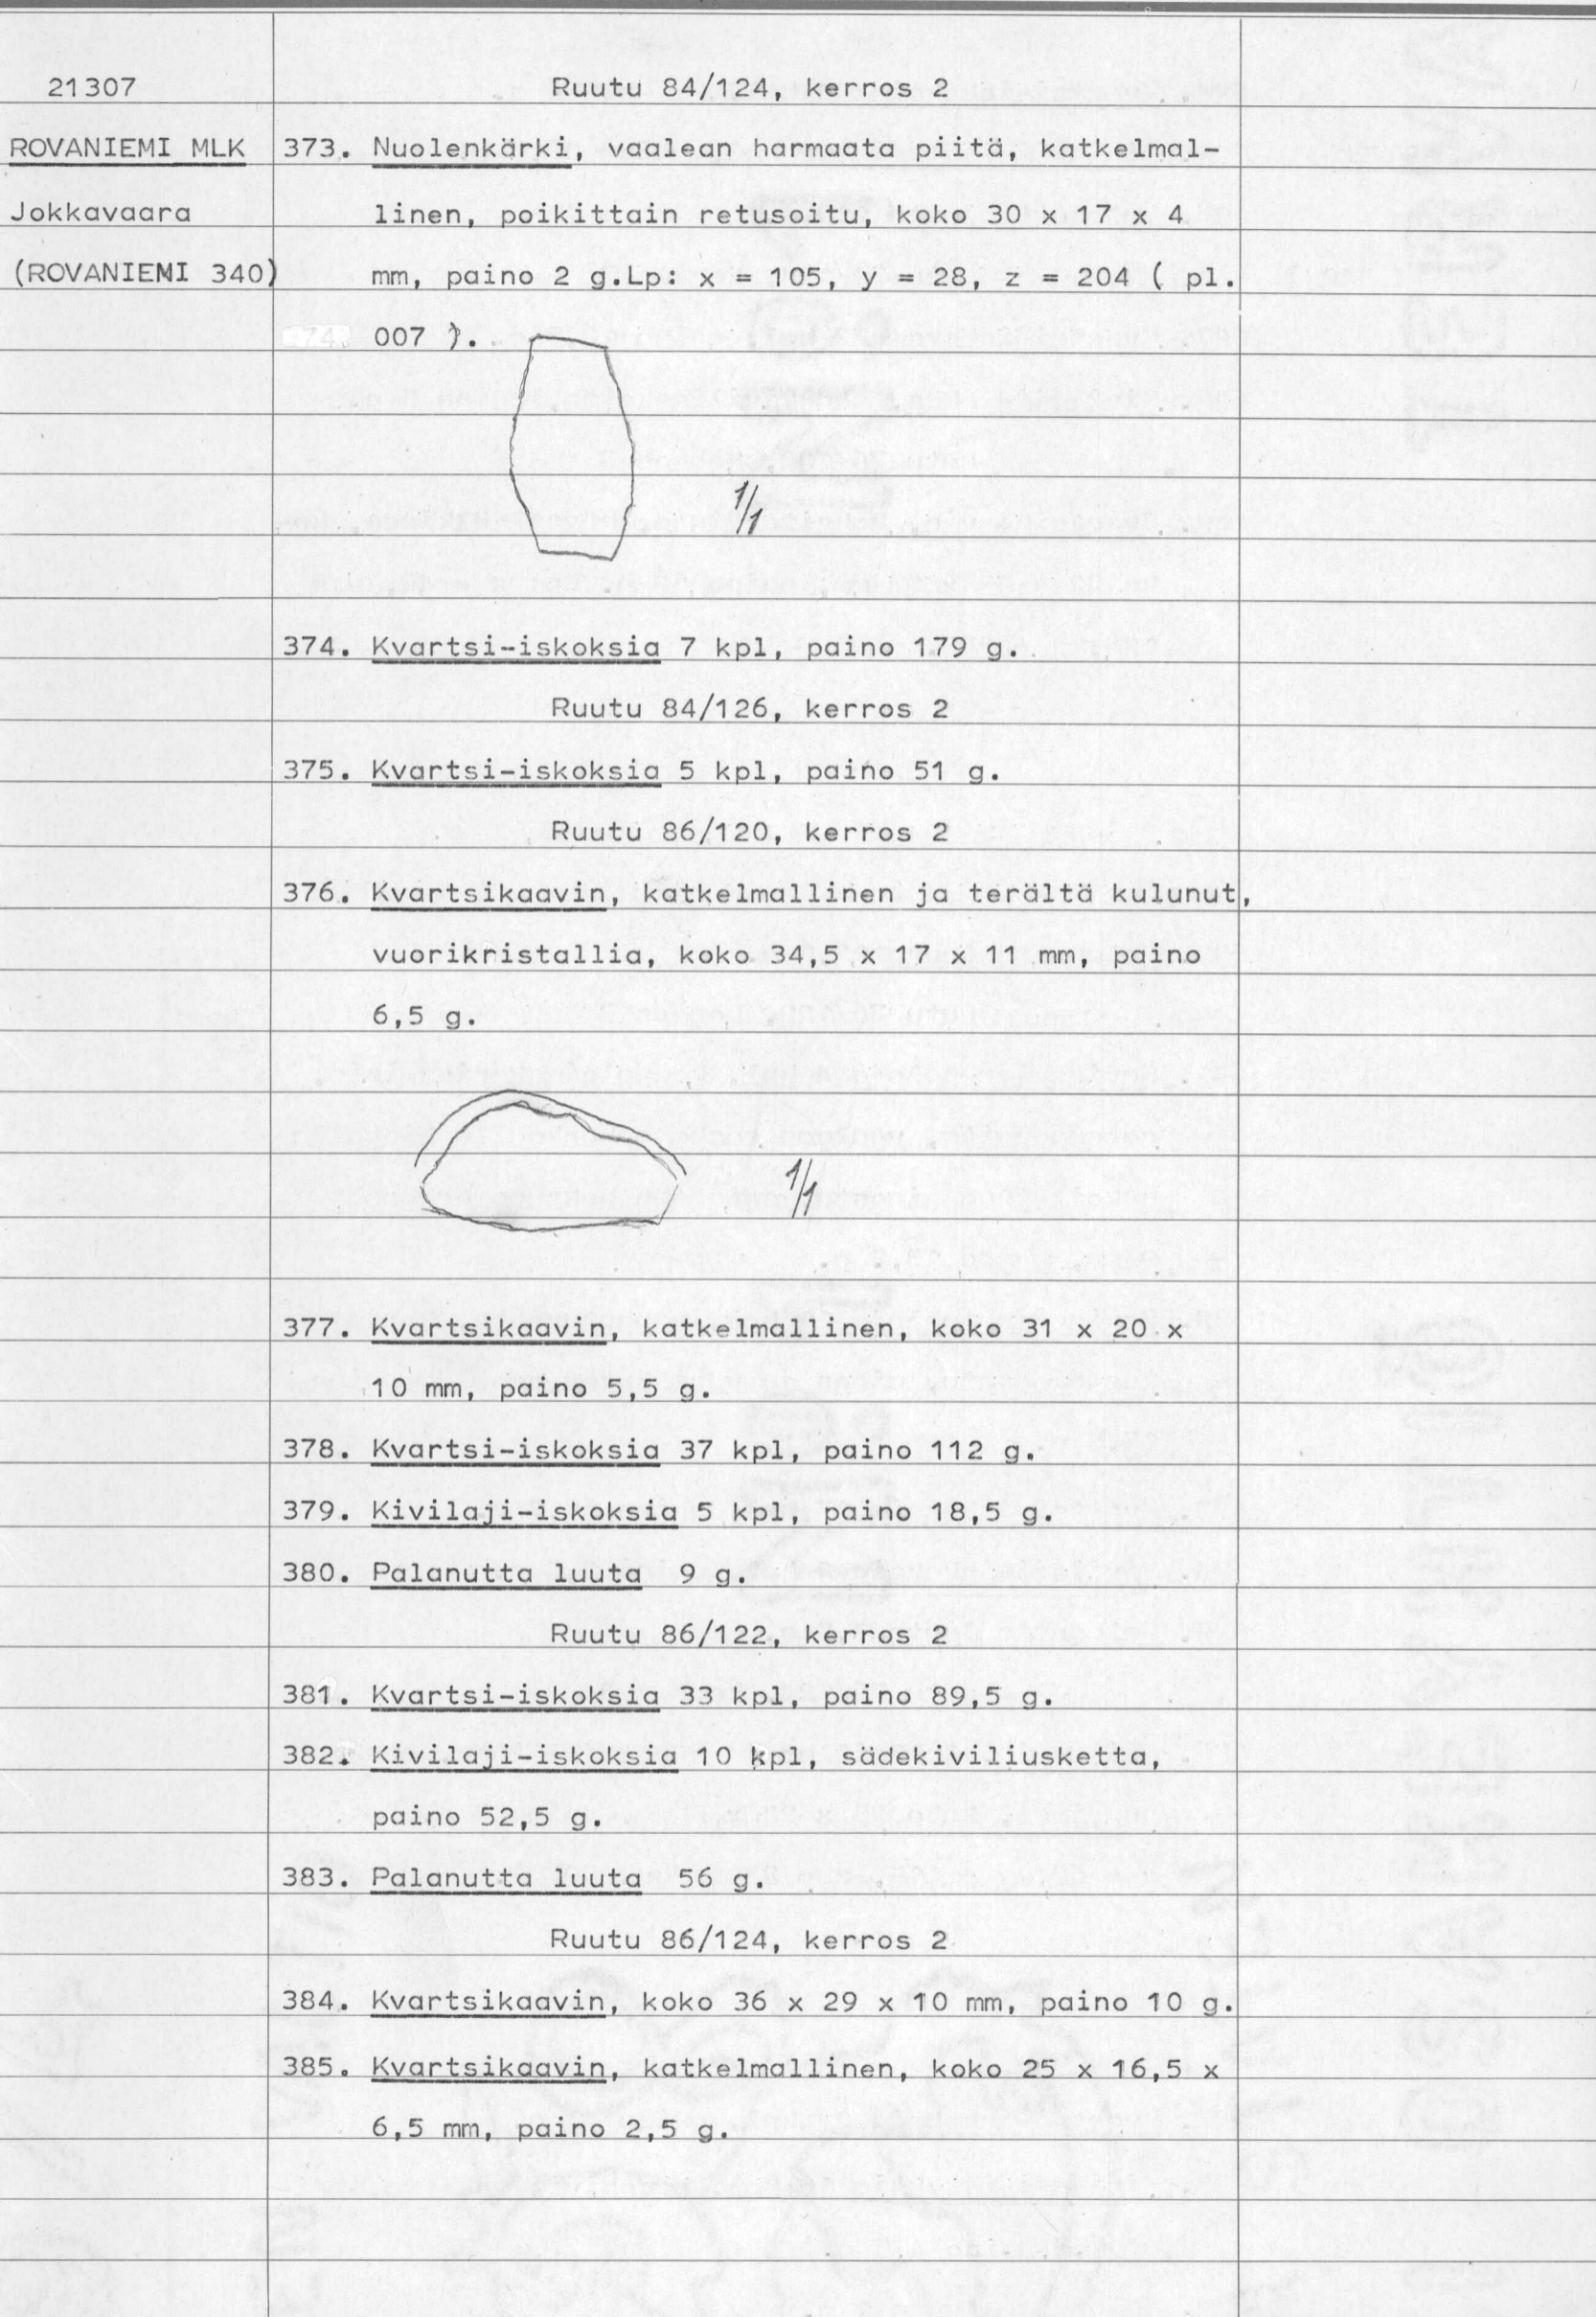 21307
Ruutu 84/124, kerros 2
ROVANIEMI MLK
373. Nuolenkärki, vaalean harmaata piitä, katkelmal-
Jokkavaara
linen, poikittain retusoitu, koko 30 x 17 x 4
(ROVANIEMI 340)
mm, paino 2 g.Lp: x = 105, y = 28, z = 204 ( pl.
007 ).
1/1
374. Kvartsi-iskoksia 7 kpl, paino 179 g.
Ruutu 84/126, kerros 2
375. Kvartsi-iskoksia 5 kpl, paino 51 g.
Ruutu 86/120, kerros 2
376. Kvartsikaavin, katkelmallinen ja terältä kulunut,
vuorikristallia, koko 34,5 x 17 x 11 mm, paino
6,5 g.
1/1
377. Kvartsikaavin, katkelmallinen, koko 31 x 20 x
10 mm, paino 5,5 g.
378. Kvartsi-iskoksia 37 kpl, paino 112 g.
379. Kivilaji-iskoksia 5 kpl, paino 18,5 g.
380. Palanutta luuta 9 g.
Ruutu 86/122, kerros 2
381. Kvartsi-iskoksia 33 kpl, paino 89,5 g.
382. Kivilaji-iskoksia 10 kpl, sädekiviliusketta,
paino 52,5 g.
383. Palanutta luuta 56 g.
Ruutu 86/124, kerros 2
384. Kvartsikaavin, koko 36 x 29 x 10 mm, paino 10 g.
385. Kvartsikaavin, katkelmallinen, koko 25 x 16,5 x
6,5 mm, paino 2,5 g.